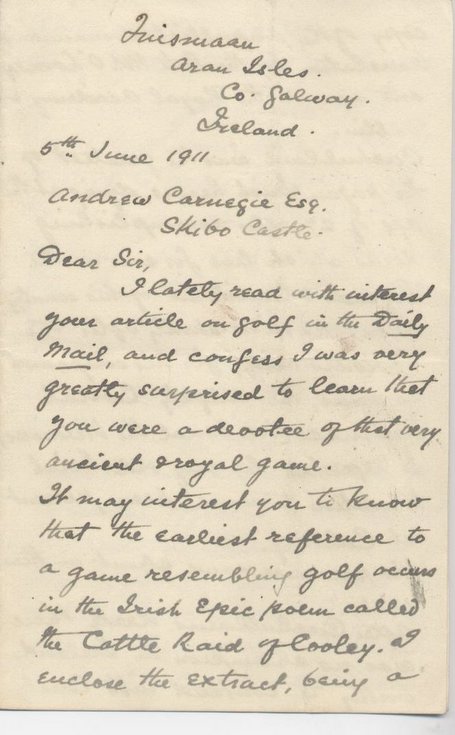 Inismaan
Aran Isles.
Co. Galway.
Ireland.
5th June 1911
Andrew Carnegie Esq.
Skibo Castle.
Dear Sir,
I lately read with interest
your article on golf in the Daily
Mail, and confess I was very
greatly surprised to learn that
you were a devotee of that very
ancient & royal game.
It may interest you to know
that the earliest reference to
a game resembling golf occurs
in the Irish Epic poem called
the Cattle Raid of Cooley. I
enclose the extract, being a